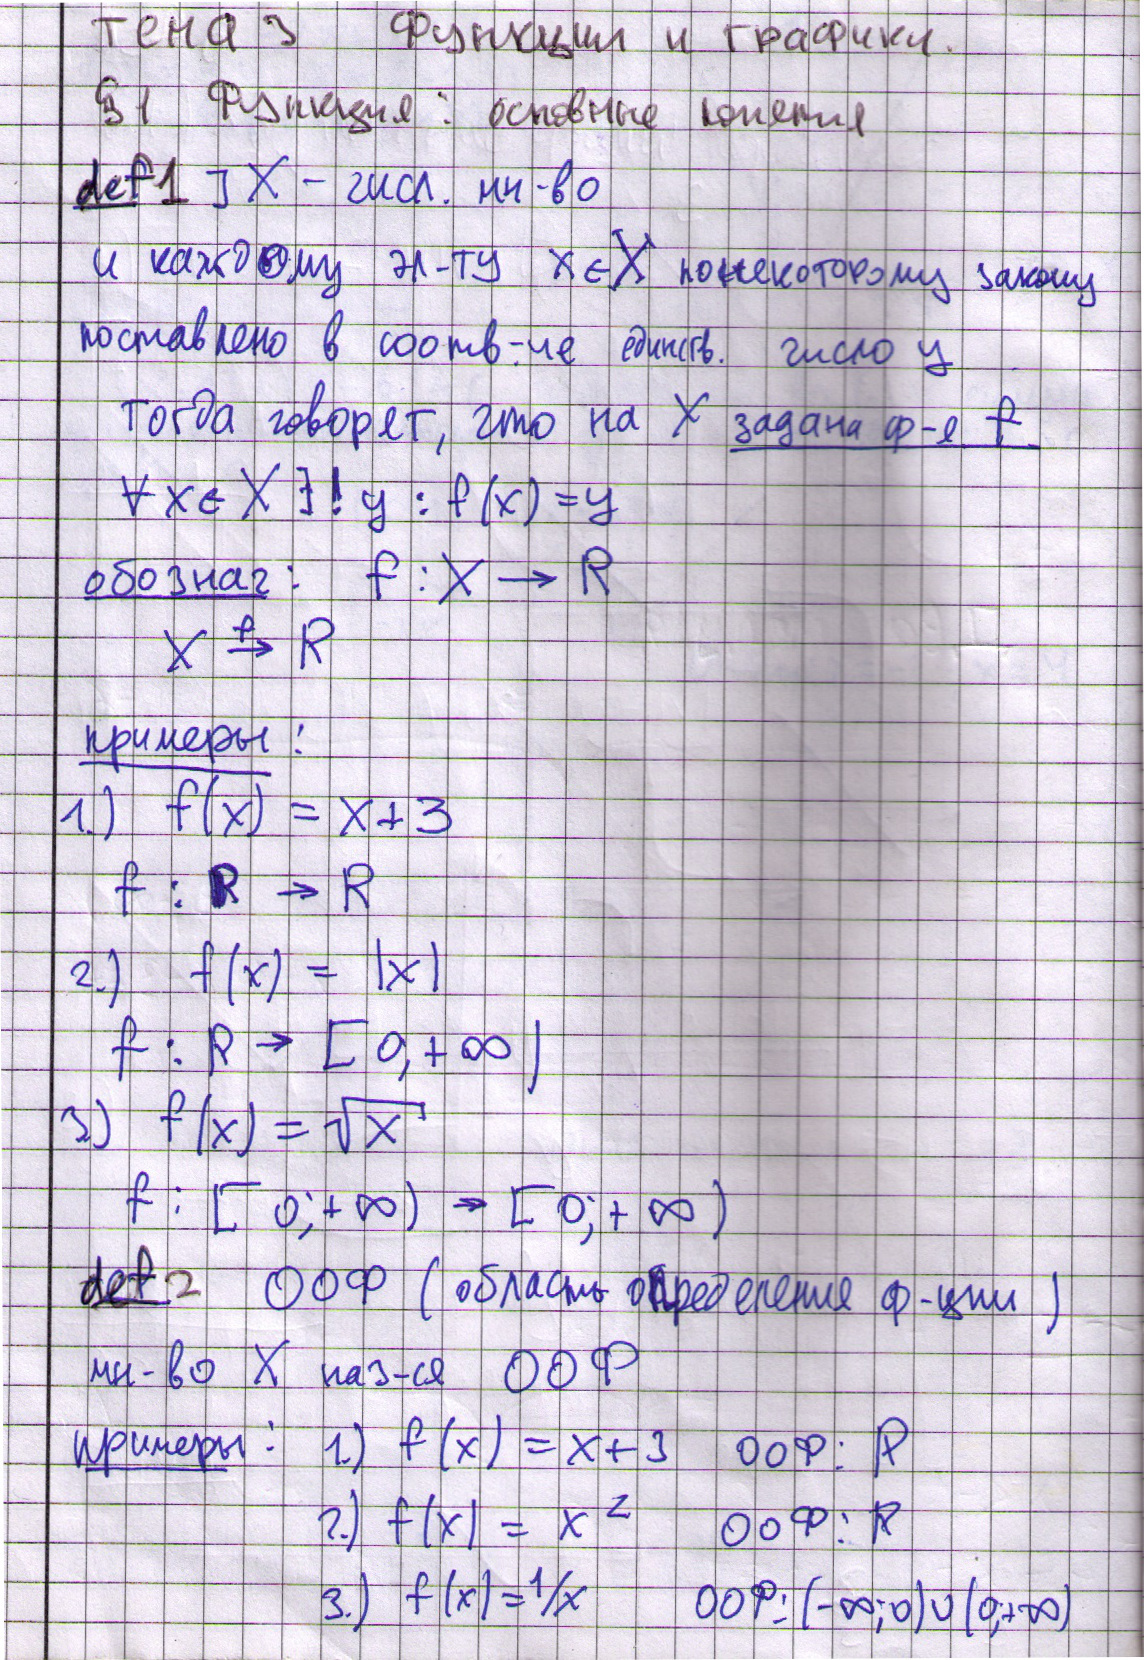 тема 3 Функции и графики.
§1 Функция: основные понятия
def 1 ] X – числ. мн-во
и каждому эл-ту x∈X по некоторому закону
поставлено в соотв-ие единств. число y
Тогда говорят, что на X задана ф-я f
∀ x∈X ∃! y : f(x) = y
обознач: f : X → R
X →f R
примеры:
1.) f(x) = x+3
f : R → R
2.) f(x) = |x|
f : R → [0,+∞)
3) f(x) = √x
f : [0;+∞) → [0;+∞)
def 2 ООФ (область определения ф-ции)
мн-во X наз-ся ООФ
примеры: 1.) f(x) = x+3 ООФ: R
2.) f(x) = x² ООФ: R
3.) f(x) = 1/x ООФ: (-∞;0)∪(0;+∞)